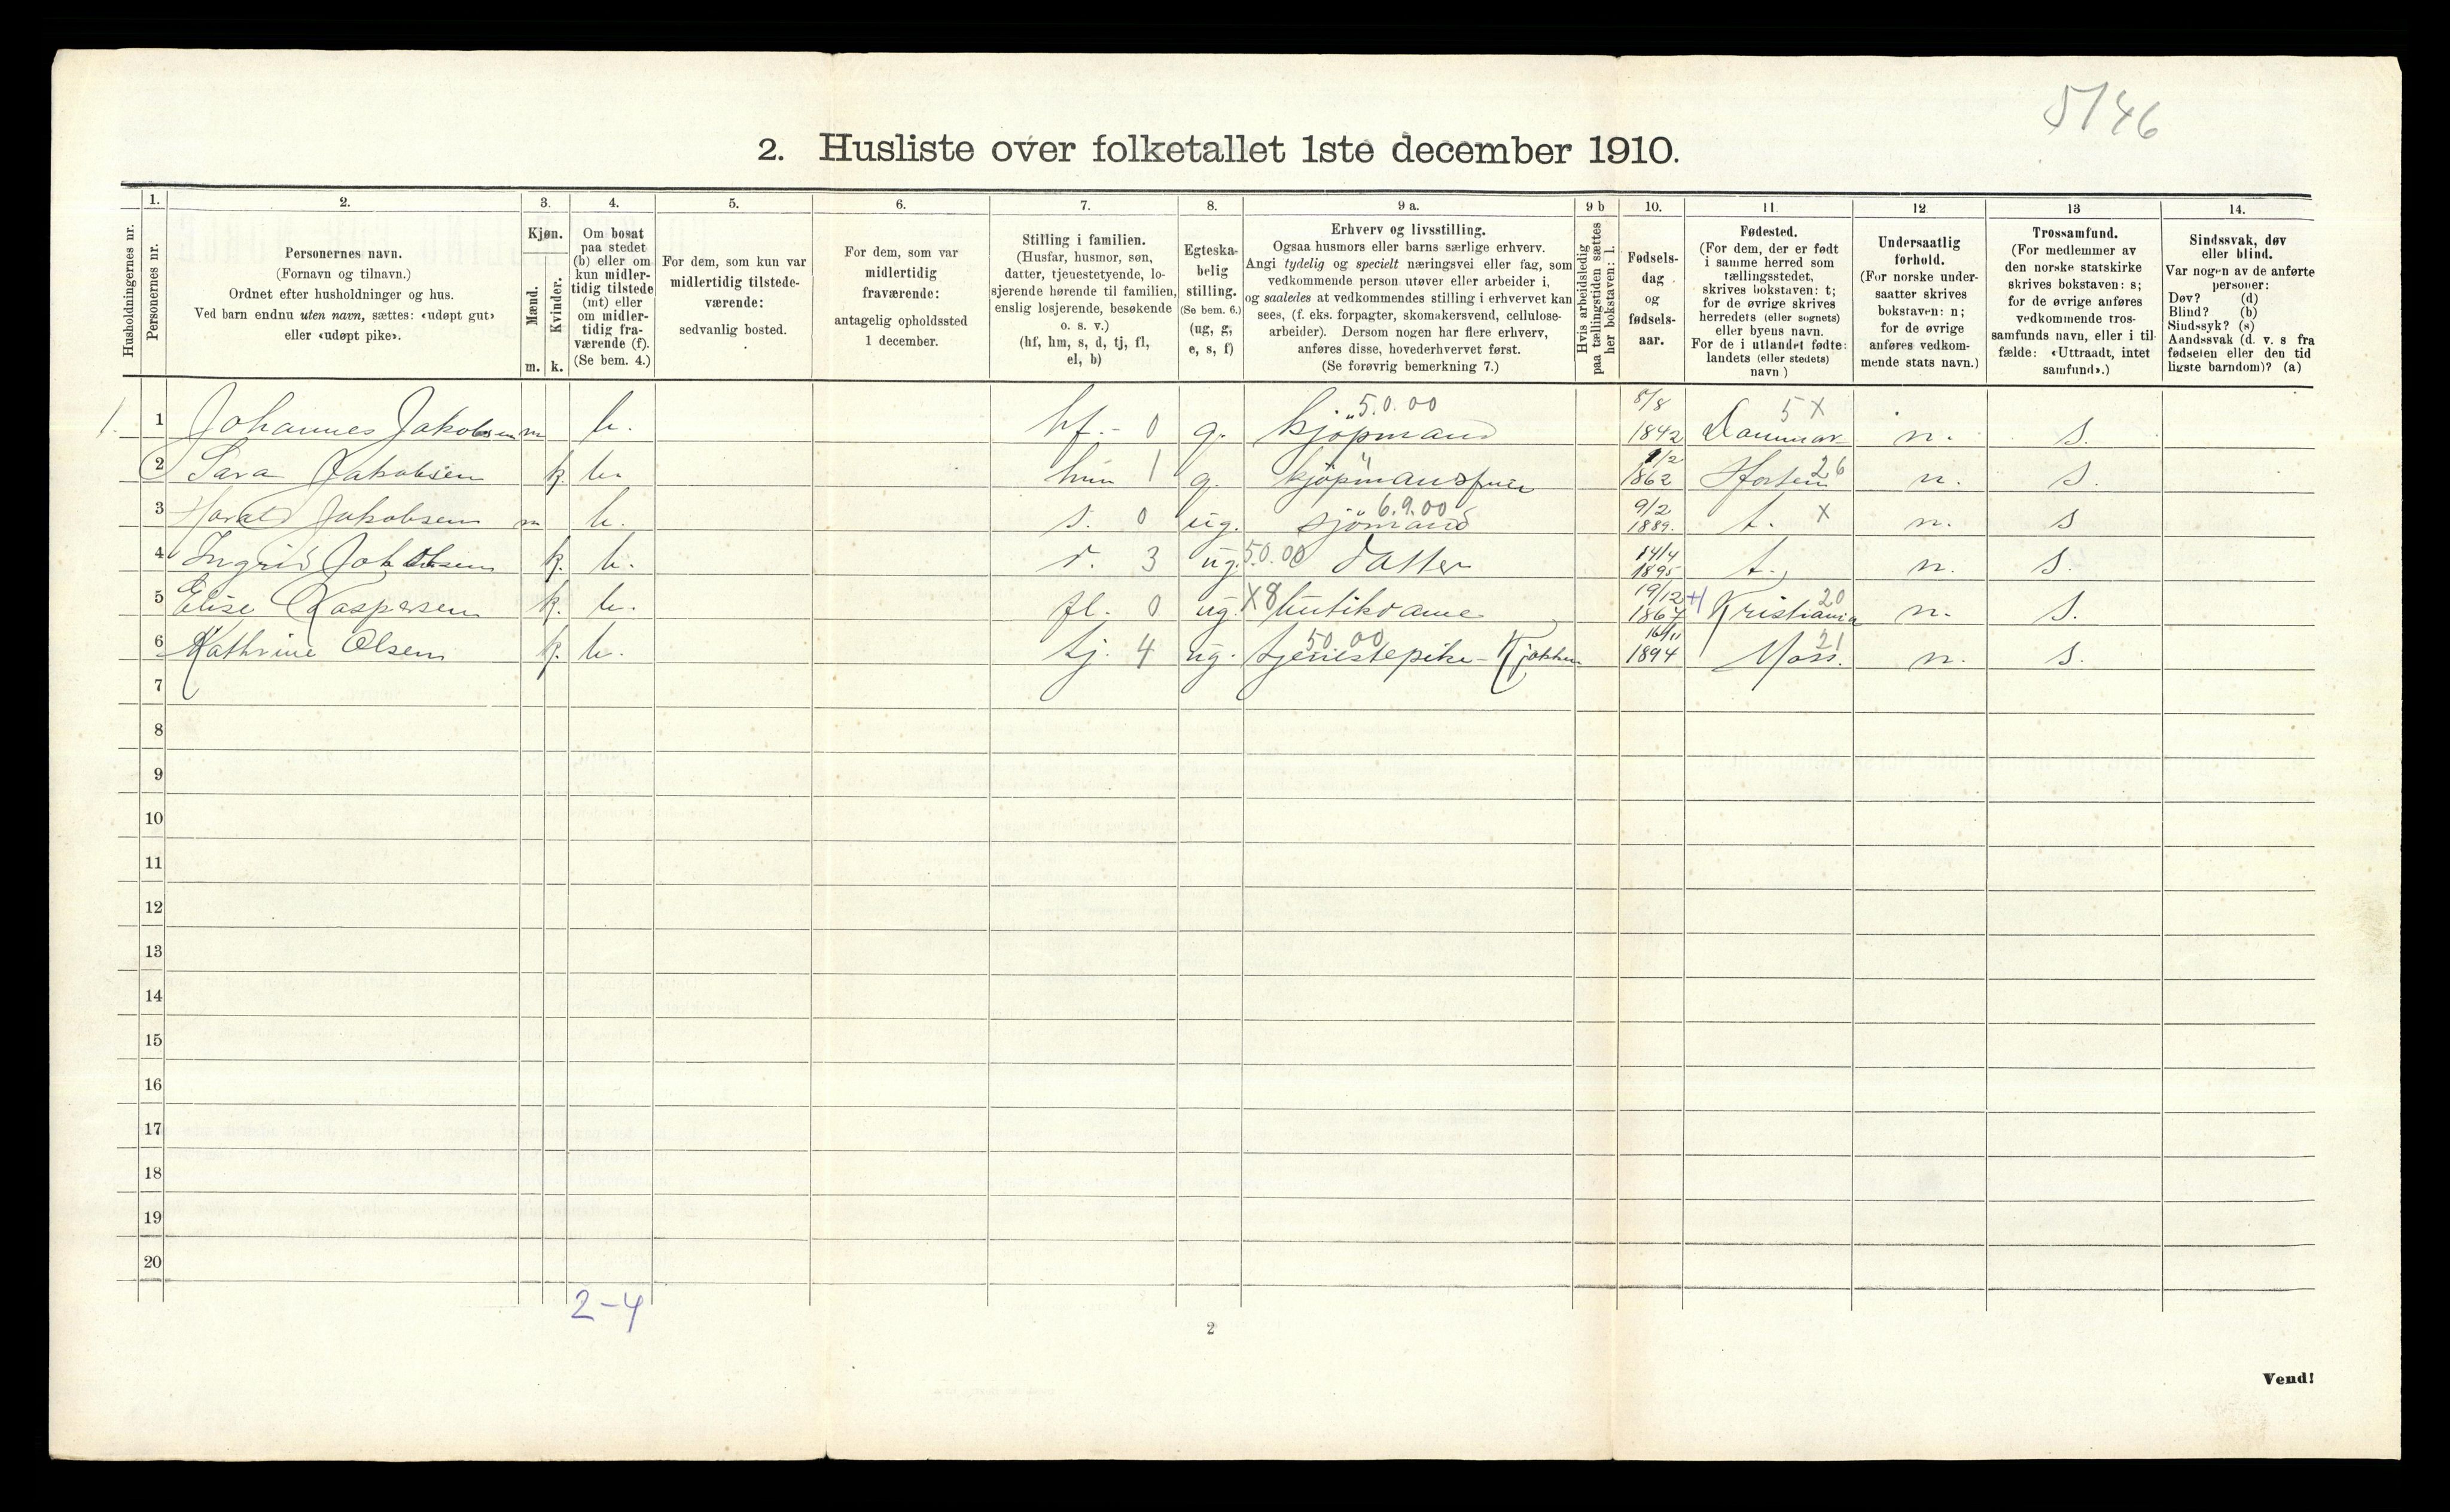 5/46
2. Husliste over folketallet 1ste december 1910.
Husholdningernes nr.
1. Personernes nr.
2.
Personernes navn.
(Fornavn og tilnavn.)
Ordnet efter husholdninger og hus.
Ved barn endnu uten navn, sættes: «udøpt gut»
eller «udøpt pike».
3.
Kjøn.
Mænd. Kvinder.
m. k.
4.
Om bosat
paa stedet
(b) eller om
kun midler-
tidig tilstede
(mt) eller
om midler-
tidig fra-
værende (f).
(Se bem. 4.)
5.
For dem, som kun var
midlertidig tilstede-
værende:
sedvanlig bosted.
6.
For dem, som var
midlertidig
fraværende:
antagelig opholdssted
1 december.
7.
Stilling i familien.
(Husfar, husmor, søn,
datter, tjenestetyende, lo-
sjerende hørende til familien,
enslig losjerende, besøkende
o. s. v.)
(hf, hm, s, d, tj, fl,
el, b)
8.
Egteska-
belig
stilling.
(Se bem. 6.)
(ug, g,
e, s, f)
9 a.
Erhverv og livsstilling.
Ogsaa husmors eller barns særlige erhverv.
Angi tydelig og specielt næringsvei eller fag, som
vedkommende person utøver eller arbeider i,
og saaledes at vedkommendes stilling i erhvervet kan
sees, (f. eks. forpagter, skomakersvend, cellulose-
arbeider). Dersom nogen har flere erhverv,
anføres disse, hovederhvervet først.
(Se forøvrig bemerkning 7.)
9 b
Hvis arbeidsledig
paa tællingstiden sættes
her bokstaven: l.
10.
Fødsels-
dag
og
fødsels-
aar.
11.
Fødested.
(For dem, der er født
i samme herred som
tællingsstedet,
skrives bokstaven: t;
for de øvrige skrives
herredets (eller sognets)
eller byens navn.
For de i utlandet fødte:
landets (eller stedets)
navn.)
12.
Undersaatlig
forhold.
(For norske under-
saatter skrives
bokstaven: n;
for de øvrige
anføres vedkom-
mende stats navn.)
13
Trossamfund.
(For medlemmer av
den norske statskirke
skrives bokstaven: s;
for de øvrige anføres
vedkommende tros-
samfunds navn, eller i til
fælde: «Uttraadt, intet
samfund».)
14.
Sindssvak, døv
eller blind.
Var nogen av de anførte
personer:
Døv? (d)
Blind? (b)
Sindssyk? (s)
Aandssvak (d. v. s fra
fødselen eller den tid
ligste barndom)? (a)
1. 1 Johannes Jakobsen m b. hf. - 0 g. kjöpmand 5.0.00 5/8 1842 Danmar 5 X n. s.
2 Sara Jakobsen k. b. hm 1 g. kjöpmansfrue 1/2 1862 Horten 26 n. s.
3 Harald Jakobsen m b. s. 0 ug. sjömand 6.9.00 9/2 1889. t. X n. s
4 Ingrid Jakobsen k. b. d. 3 ug. 50.00 datter 14/4 1895 t. n. s.
5 Elise Kaspersen k. b. fl. 0 ug. X8 butikdame 19/12 1867 Kristiania 20 n. s.
6 Kathrine Olsen k. b. tj. 4 ug. tjenestepike - Kjökken 50.00 16/11 1894 Moss. 21 n. s.
7
8
9
10
11
12
13
14
15
16
17
18
19
20
2-4
2
Vend!